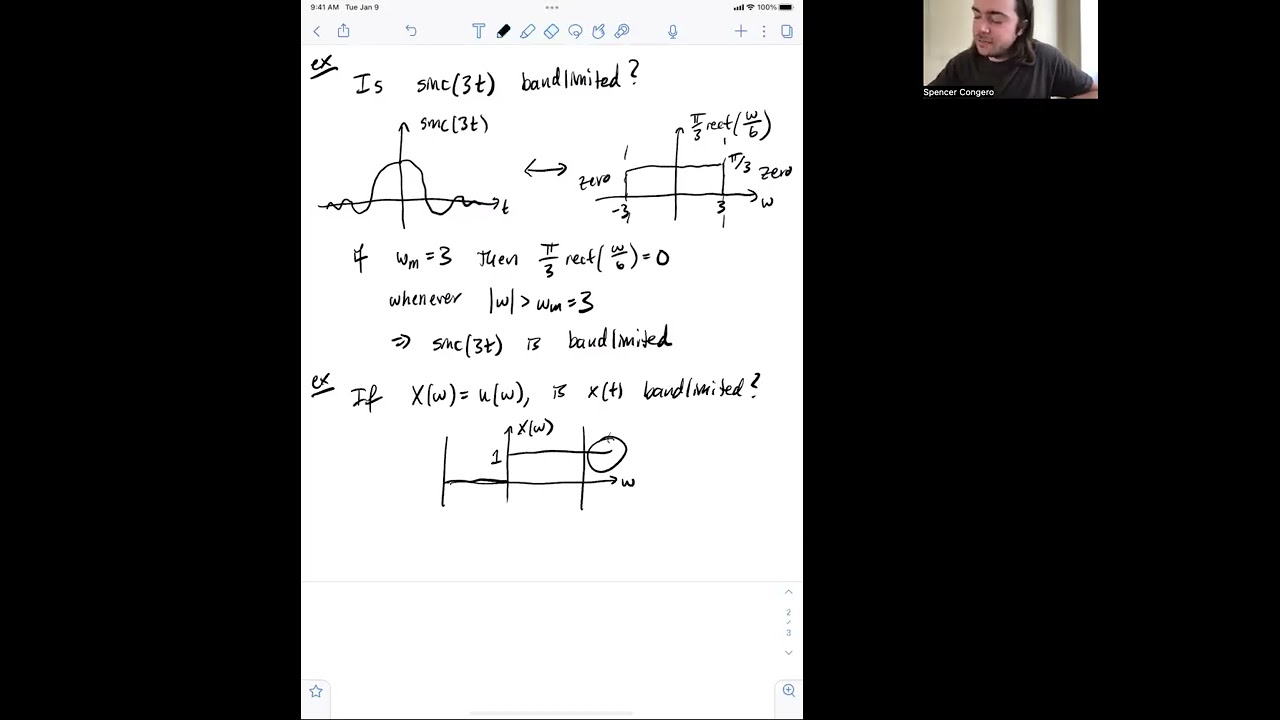 9:41 AM Tue Jan 9
100%
ex Is sinc(3t) bandlimited?
sinc(3t)
π/3 rect(w/6)
zero π/3 zero
t
-3 3 w
If wm = 3 then π/3 rect(w/6) = 0
whenever |w| > wm = 3
⇒ sinc(3t) is bandlimited
ex If X(w) = u(w), is x(t) bandlimited?
X(w)
1
w
2
/
3
Spencer Congero